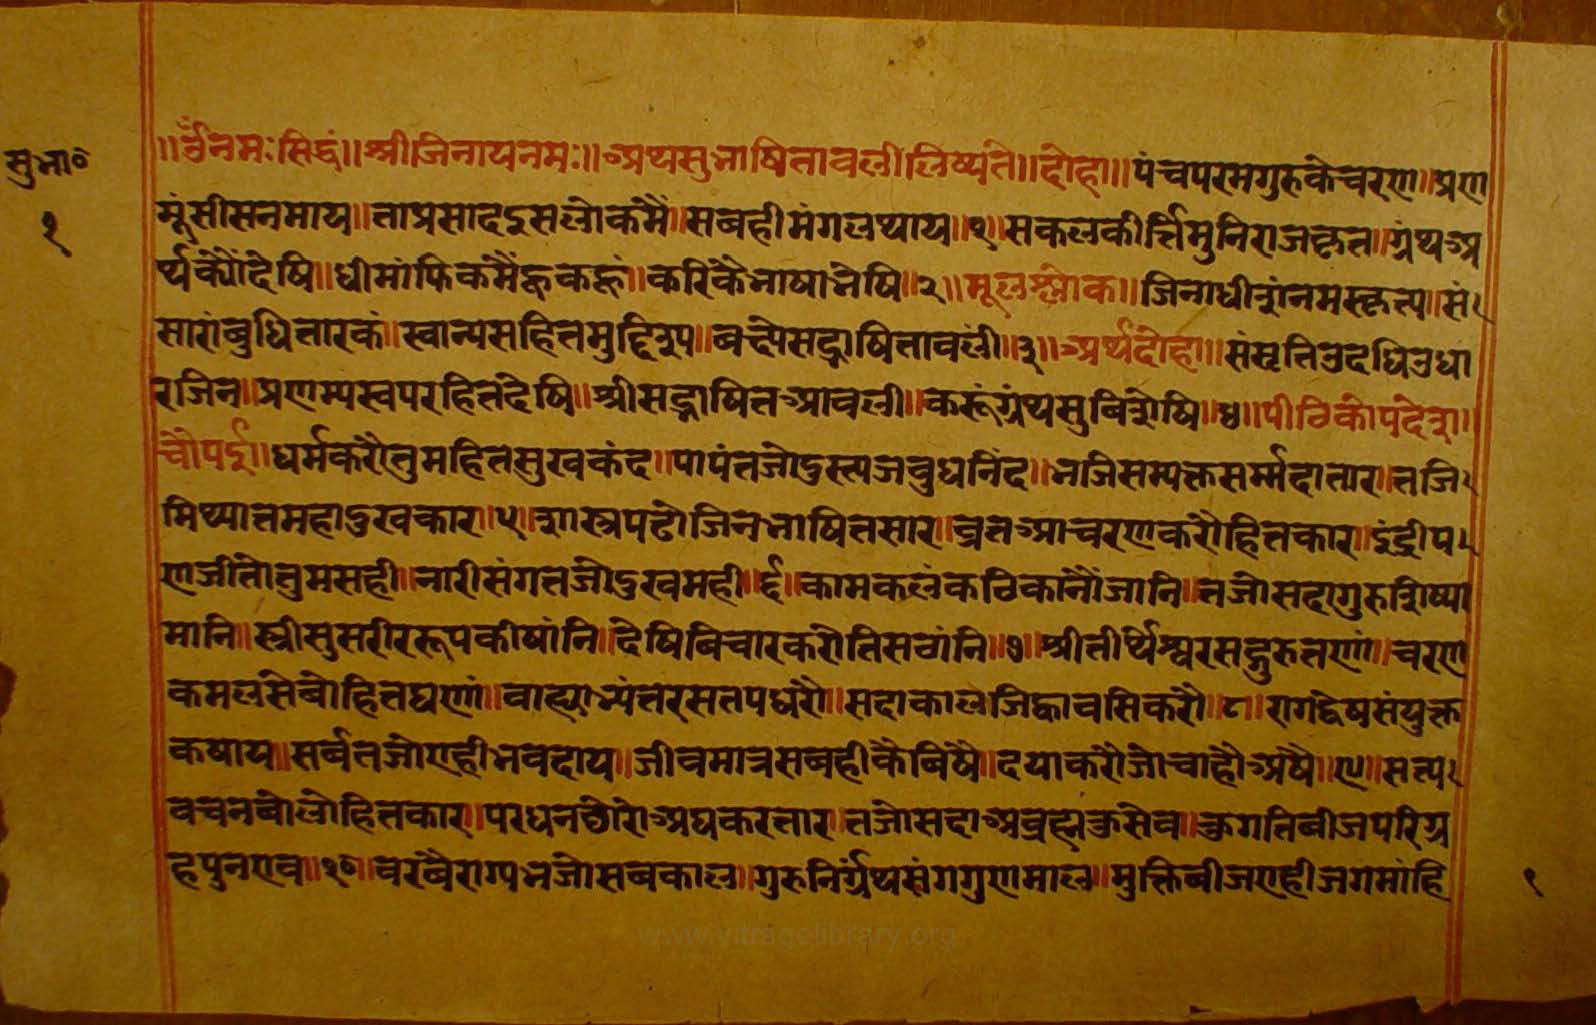 सुभा०
१
॥ॐनमःसिद्धं॥श्रीजिनायनमः॥अथसुभाषितावलीलिष्यते॥दोहा॥पंचपरमगुरुकेचरण॥प्रण
मूंसीसनमाय॥ताप्रसादइसलोकमैं॥सबहीमंगलथाय॥१॥सकलकीर्त्तिमुनिराजकृत॥ग्रंथअ
र्थक्यौंदेषि॥धीमांफिकमैंहूकहूं॥करिकैभाषाभेषि॥२॥मूलश्लोक॥जिनाधीशंनमस्कृत्य॥सं
सारांबुधितारकं॥स्वान्यसहितमुद्दिश्प॥बक्ष्येसद्भाषितावलीं॥३॥अर्थदोहा॥संसृतिउदधिउधा
रजिन॥प्रणम्यस्वपरहितदेषि॥श्रीसद्भाषितआवली॥करूंग्रंथसुबिशेषि॥४॥पीठिकोपदेश॥
चौपई॥धर्मकरौतुमहितसुखकंद॥पापंतजोदुस्त्यजबुधनिंद॥भजिसम्यक्तसर्म्मदातार॥तजि
मिथ्यातमहादुखकार॥५॥शास्त्रपढोजिनभाषितसार॥व्रतआचरणकरौहितकार॥इंद्रीप
णजीतोतुमसही॥नारीसंगतजोदुखमही॥६॥कामकलंकठिकानौंजानि॥तजोसदागुरुशिष्या
मानि॥स्त्रीसुसरीररूपकीषांनि॥देषिबिचारकरोतिसवांनि॥७॥श्रीतीर्थेश्वरसद्गुरुतणां॥चरण
कमलसेबोहितघणां॥वाह्याभ्यंतरसतपधरौ॥सदाकालजिह्वावसिकरौ॥८॥रागद्वेषसंयुक्त
कषाय॥सर्बतजोएहीभवदाय॥जीवमात्रसबहीकैबिषै॥दयाकरौजोचाहौअषै॥९॥सत्य
वचनबोलोहितकार॥परधनछोरोअघकरतार॥तजोसदाअब्रह्मकुसेव॥कुगतिबीजपरिग्र
हपुनएव॥१०॥वरबैराग्यभजोसबकाल॥गुरुनिर्ग्रंथसंगगुणमाल॥मुक्तिबीजएहीजगमांहि
१
www.vitragelibrary.org